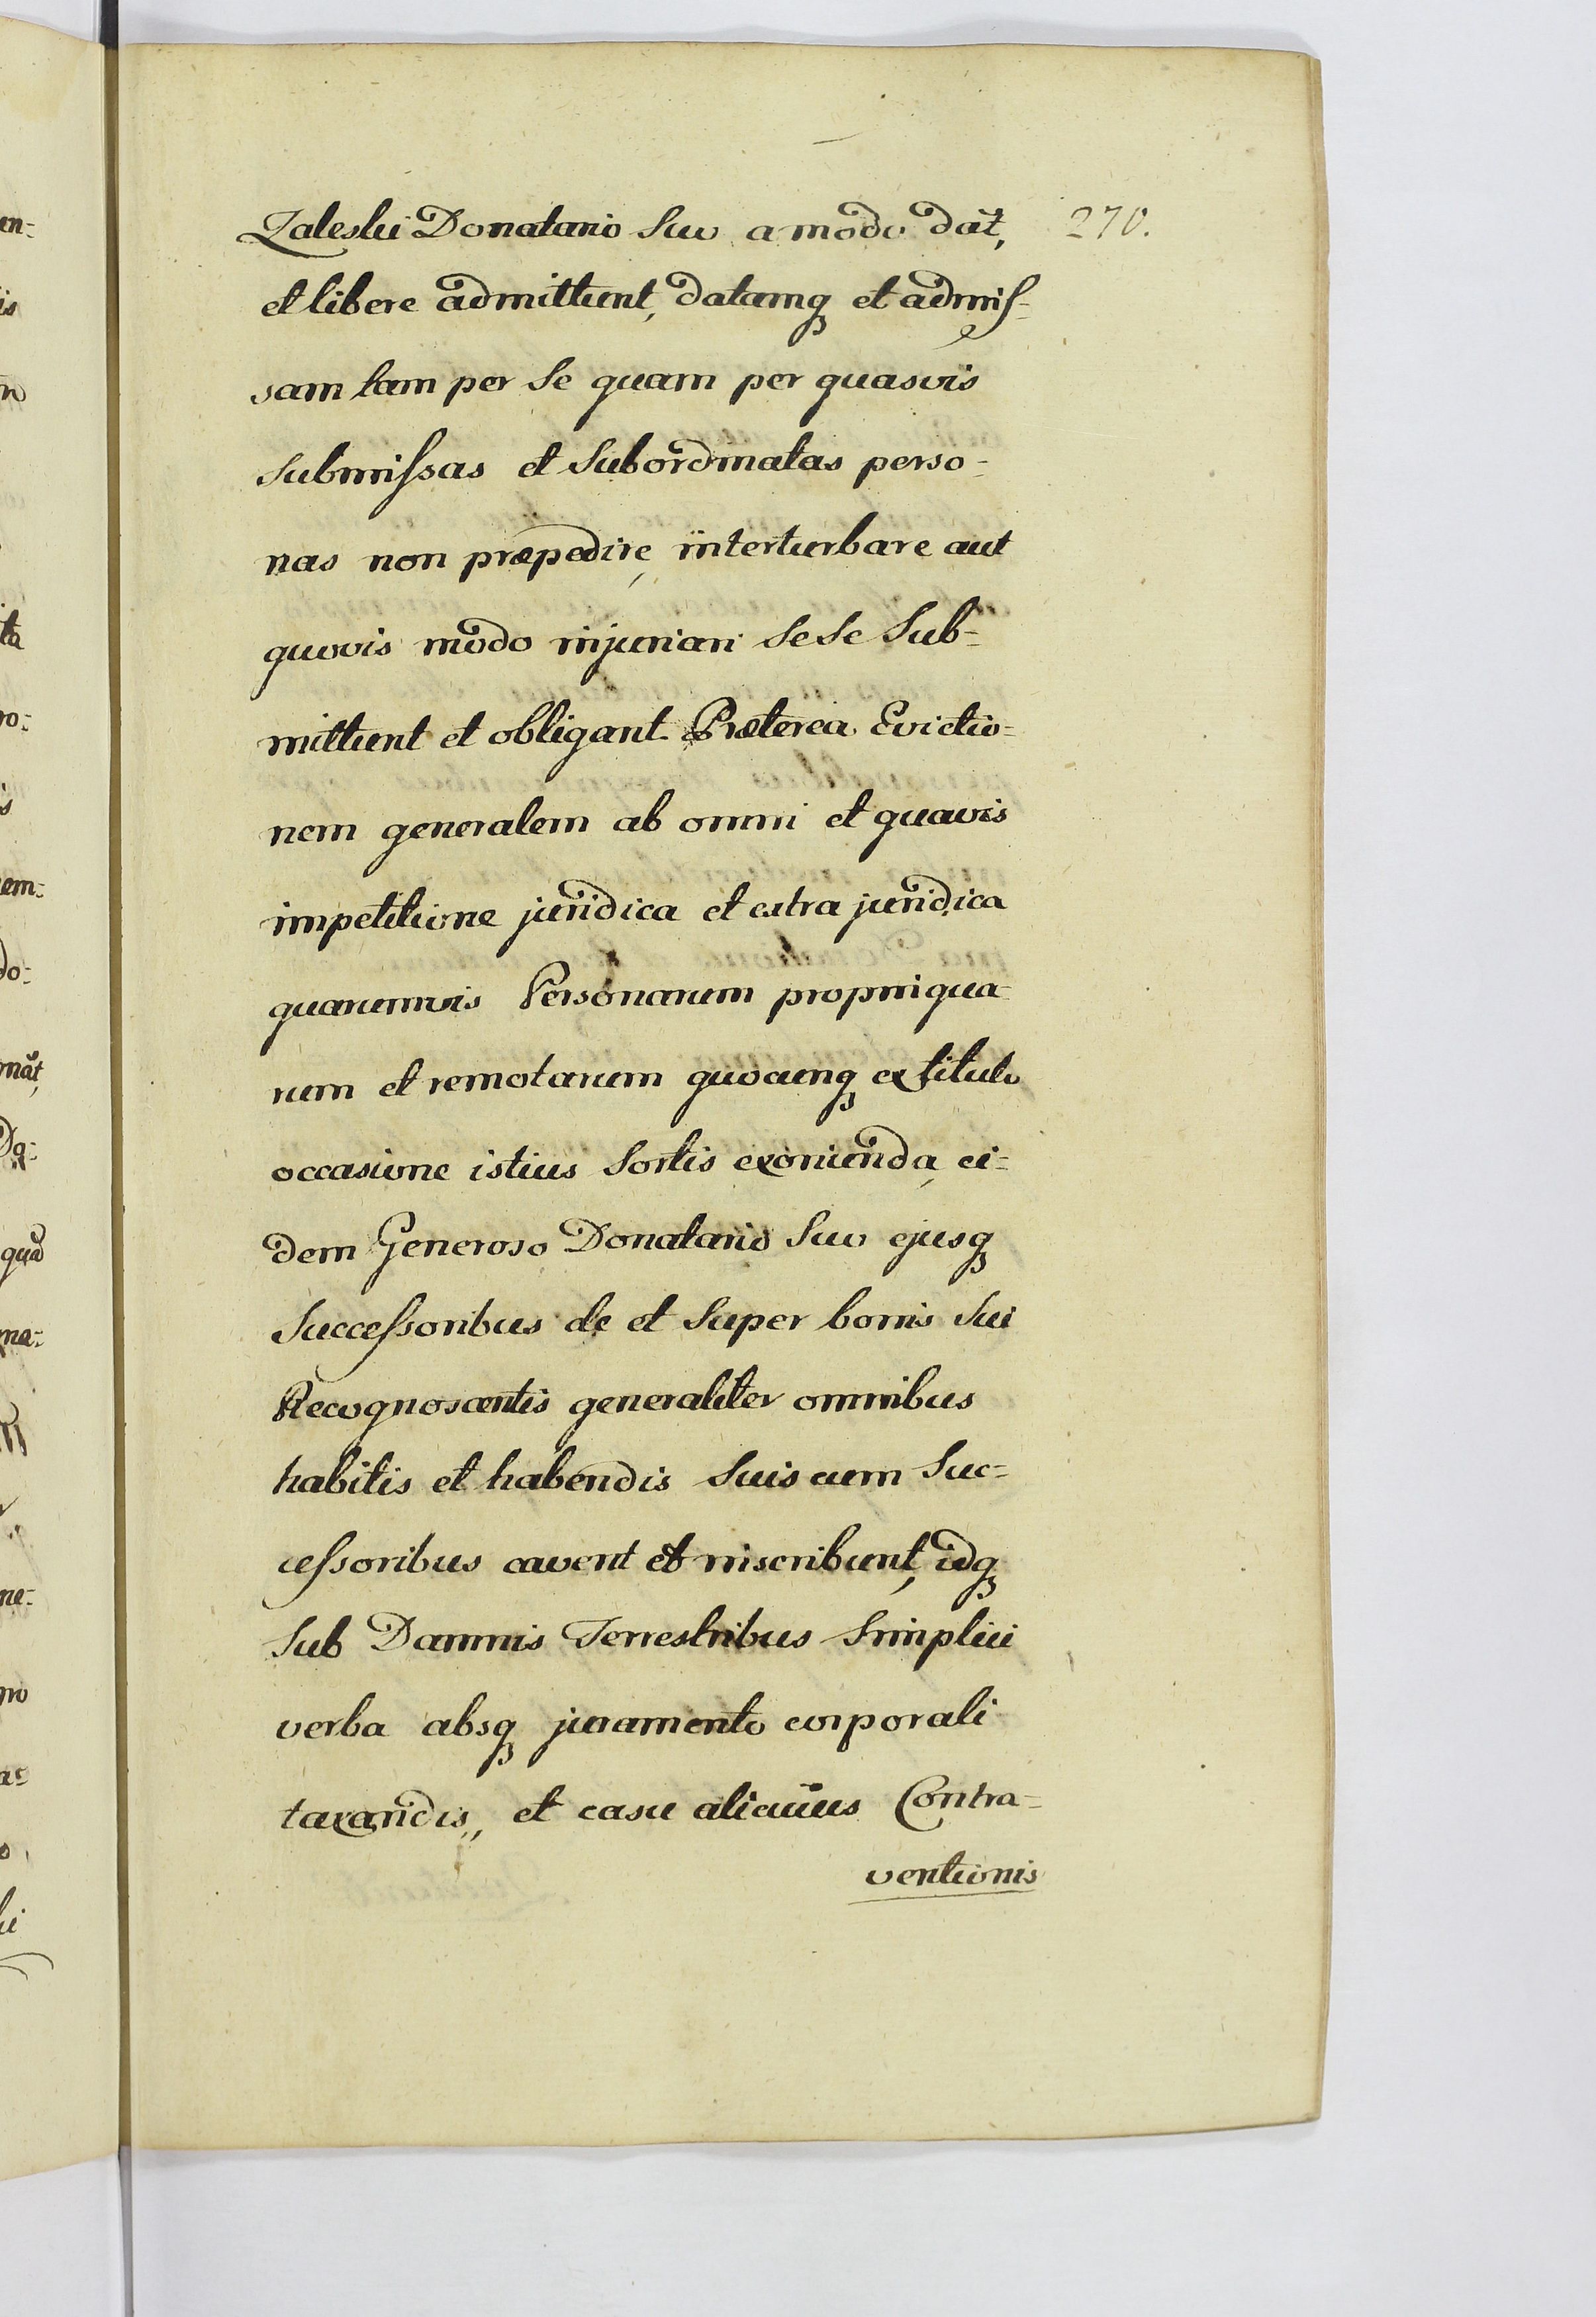 Zaleski Donatario Suo a modo dat̃,
270.
et libere admittunt, datamq; et admis-
sam tam per Se quam per quasvis
Submissas et Subordinatas perso-
nas non præpedire, interturbare aut
quovis modo injuriari Sese Sub-
mittunt et obligant. Præterea Evictio-
nem generalem ab omni et quavis
impetitione juridica et extra juridica
quarumvis Personarum propinqua-
rum et remotarum quocunq; ex titulo
occasione istius Sortis exorienda, ei-
dem Generoso Donatario Suo ejusq;
Successoribus de et Super bonis Sui
Recognoscentis generaliter omnibus
habitis et habendis Suis cum Suc-
cessoribus cavent et inscribunt, idq;
Sub Damnis Terrestribus Simplici
verba absq; juramento corporali
taxandis, et casu alicuius Contra-
ventionis